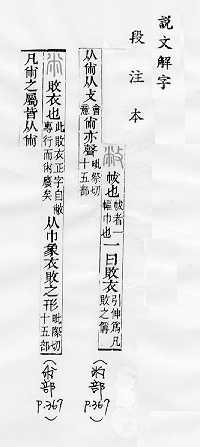 說文解字
段注本
帗也帗者一幅巾也一曰敗衣引伸爲凡敗之偁
从㡀从攴會意㡀亦聲毗祭切十五部
(㡀部 P.367)
敗衣也此敗衣正字自敝專行而㡀廢矣从巾象衣敗之形毗際切十五部
凡㡀之屬皆从㡀
(㡀部 P.367)